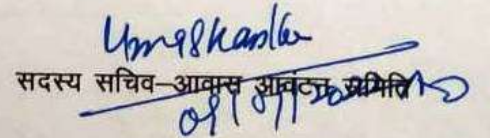 Umashankar
सदस्य सचिव-आवास आवंटन समिति